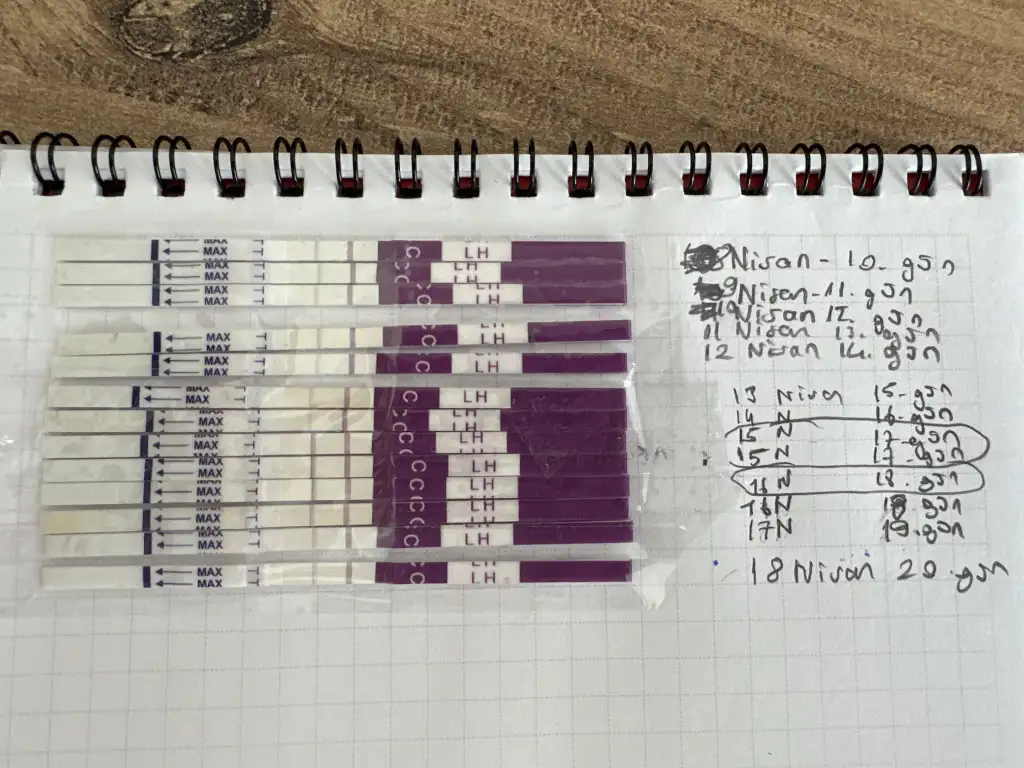 MAX
MAX T C LH
MAX C LH
MAX C LH
MAX T C LH
MAX T C LH
MAX C LH
MAX T C LH
MAX C LH
MAX T C LH
MAX C LH
MAX T C LH
MAX T C LH
MAX T C LH
MAX T C LH
8 Nisan - 10. gün
9 Nisan - 11. gün
10 Nisan 12. gün
11 Nisan 13. gün
12 Nisan 14. gün
13 Nisan 15. gün
14 N 16. gün
15 N 17. gün
15 N 17. gün
16 N 18. gün
16 N 18. gün
17 N 19. gün
18 Nisan 20. gün